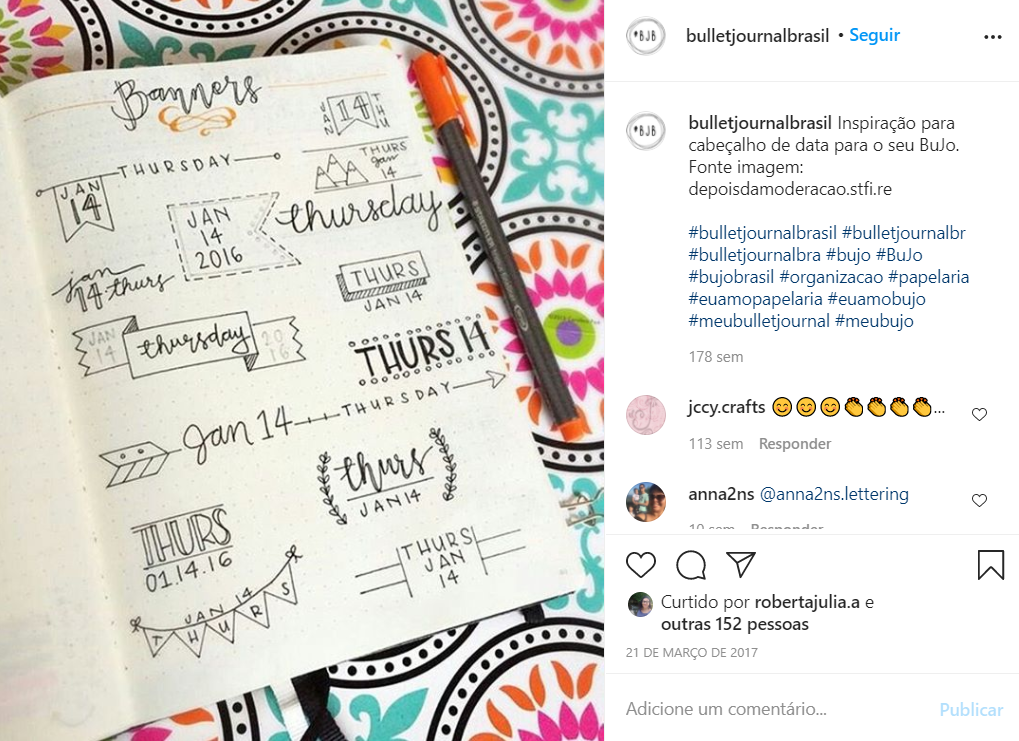 Banners
JAN 14 THU
THURSDAY
JAN
14
THURS
jan
14
JAN
14
2016
thursday
jan
14 thurs
THURS
JAN 14
JAN
14
thursday
20
16
THURS 14
Jan 14
THURSDAY
thurs
JAN 14
THURS
01.14.16
THURS
JAN
14
JAN 14
THURS
BJB
bulletjournalbrasil • Seguir
BJB
bulletjournalbrasil Inspiração para
cabeçalho de data para o seu BuJo.
Fonte imagem:
depoisdamoderacao.stfi.re
#bulletjournalbrasil #bulletjournalbr
#bulletjournalbra #bujo #BuJo
#bujobrasil #organizacao #papelaria
#euamopapelaria #euamobujo
#meubulletjournal #meubujo
178 sem
jccy.crafts 😊😊😊👏👏👏👏...
113 sem Responder
anna2ns @anna2ns.lettering
10 sem Responder
Curtido por robertajulia.a e
outras 152 pessoas
21 DE MARÇO DE 2017
Adicione um comentário... Publicar